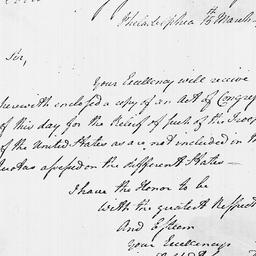 Philadelphia 15 March
Sir,
Your Excellency will receive
herewith enclosed a copy of an Act of Congress
of this day for the Relief of such of the Troops
of the United States as are not included in the
Quotas assessed on the different States—
I have the Honor to be
With the greatest Respect
And Esteem
Your Excellencys